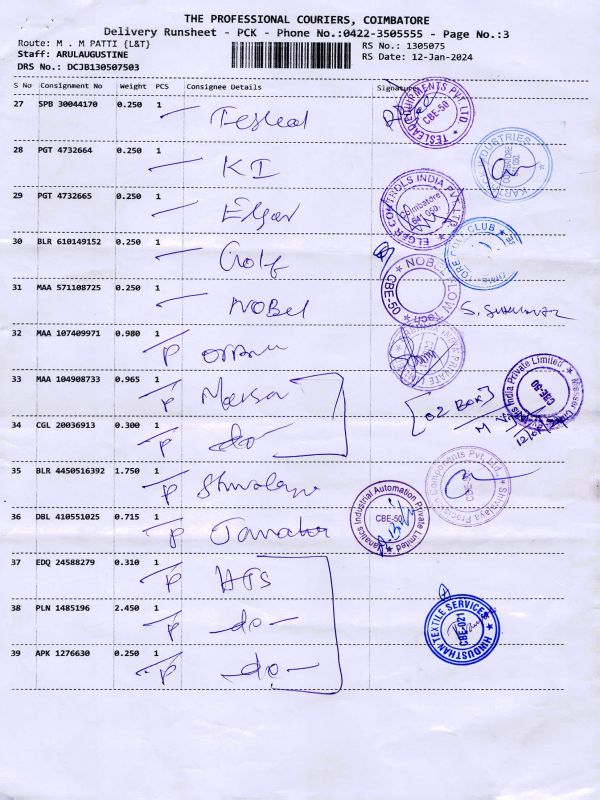 THE PROFESSIONAL COURIERS, COIMBATORE
Delivery Runsheet - PCK - Phone No.:0422-3505555 - Page No.:3
Route: M . M PATTI {L&T}
RS No.: 1305075
Staff: ARULAUGUSTINE
RS Date: 12-Jan-2024
DRS No.: DCJB130507503
S No Consignment No Weight PCS Consignee Details Signature
27 SPB 30044170 0.250 1 Teslead
TESLEAD EQUIPMENTS PVT LTD CBE-50
28 PGT 4732664 0.250 1 KI
INDUSTRIES
29 PGT 4732665 0.250 1 Elger
ELGER CONTROLS INDIA PVT LTD Coimbatore 641 050
30 BLR 610149152 0.250 1 Golf
GOLF CLUB
31 MAA 571108725 0.250 1 NOBEL
NOBEL FLOW Tech CBE-50
32 MAA 107409971 0.980 1 P
33 MAA 104908733 0.965 1 P
[02 BOX]
India Private Limited CBE-50
34 CGL 20036913 0.300 1 P do
35 BLR 4450516392 1.750 1 P Shivalaya
Shivalaya Components Pvt Ltd.
36 DBL 410551025 0.715 1 P Janatics
Janatics Industrial Automation Private Limited CBE-50
37 EDQ 24588279 0.310 1 P HTS
38 PLN 1485196 2.450 1 P -do-
HINDUSTHAN TEXTILE SERVICES CBE-021
39 APK 1276630 0.250 1 P -do-